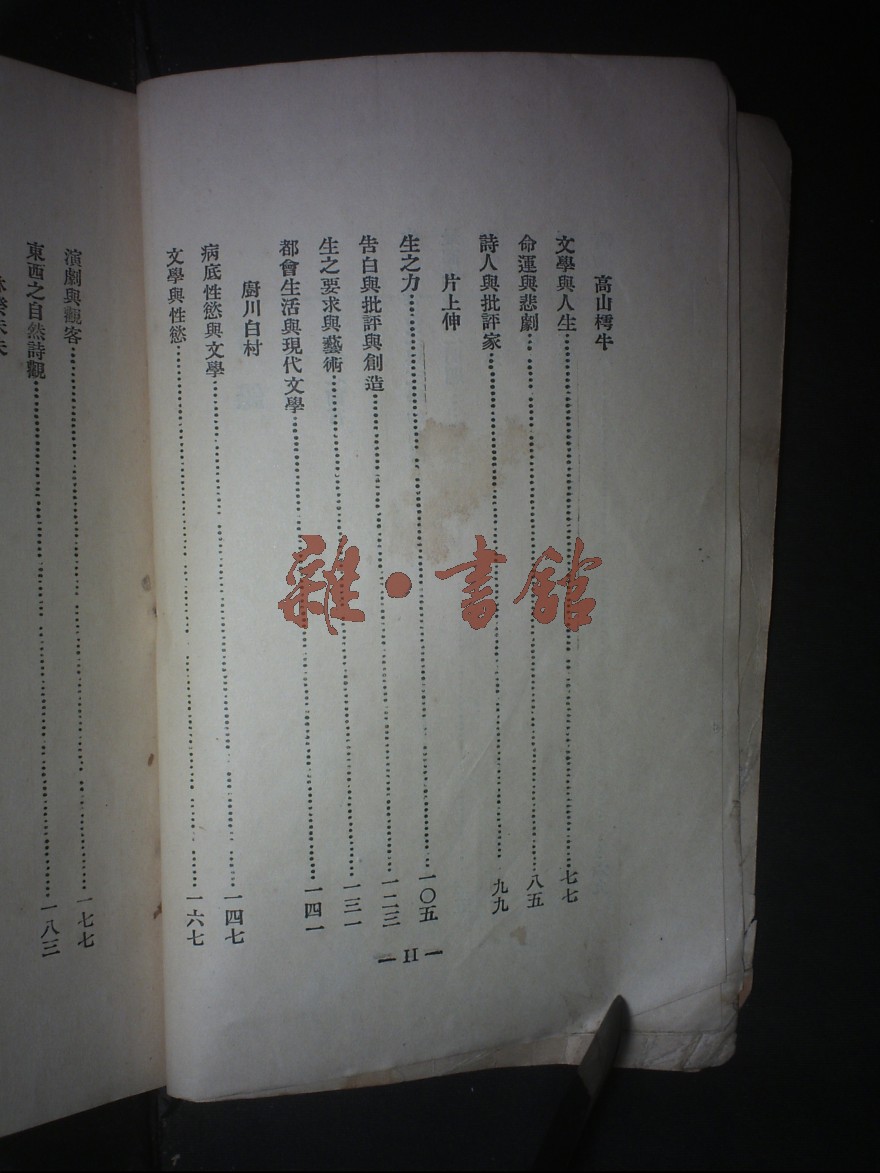 高山樗牛
文學與人生……七七
命運與悲劇……八五
詩人與批評家……九九
片上伸
生之力……一〇五
告白與批評與創造……一二三
生之要求與藝術……一三一
都會生活與現代文學……一四一
廚川白村
病底性慾與文學……一四七
文學與性慾……一六七
— II —
演劇與觀客……一七七
東西之自然詩觀……一八三
雜·書館